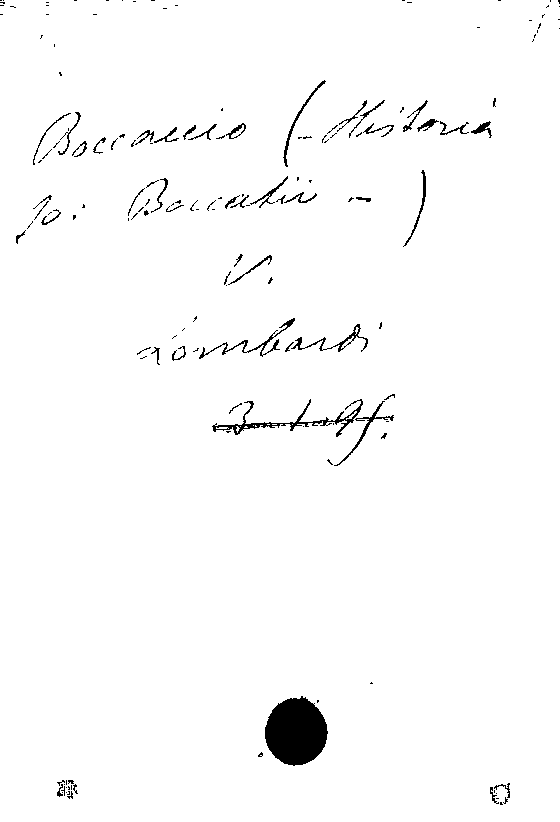 Boccaccio (- Historia
Jo: Boccatii - )
V.
Lombardi